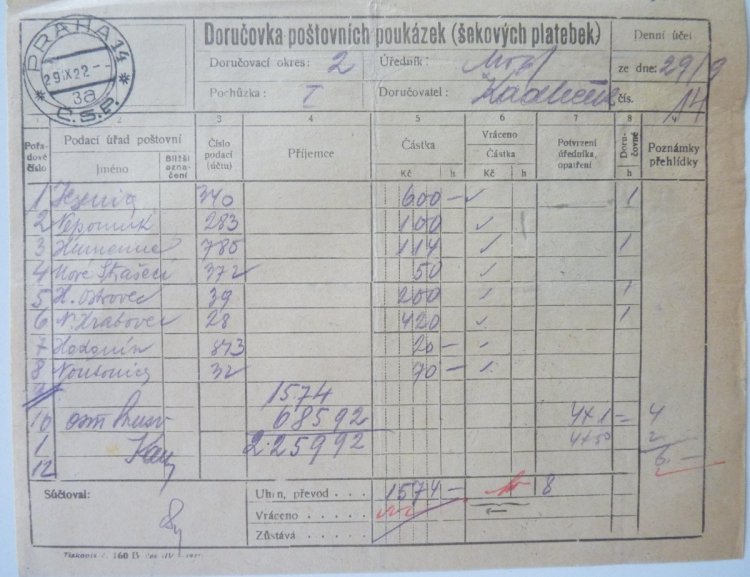 PRAHA 14
29.IX.22
3a
Č.S.P.
Doručovka poštovních poukázek (šekových platebek)
Denní účet
Doručovací okres: 2 Úředník:
ze dne: 29/9
Pochůzka: I Doručovatel:
čís. 14
1 2 3 4 5 6 7 8 9
Pořadové číslo
Podací úřad poštovní
Jméno
Bližší označení
Číslo podací (účtu)
Příjemce
Částka
Kč h
Vráceno
Částka
Kč h
Potvrzení úředníka, opatření
Doručovné
h
Poznámky přehlídky
1 340 600 — 1
2 Nepomuk 283 100
3 Humenné 785 114 1
4 Nové Strašecí 372 50
5 H. Ostrovec 39 200 1
6 N. Hrabovec 28 420 1
7 Hodonín 843 20 —
8 Noutonice 32 70 —
1574
10 osm 68592 4x1 = 4
1 225992 4x50 2
12 6 —
Súčtoval:
Úhrn, převod . . . 1574 — 8
Vráceno . . . . .
Zůstává . . . . .
Tiskopis č. 160 B